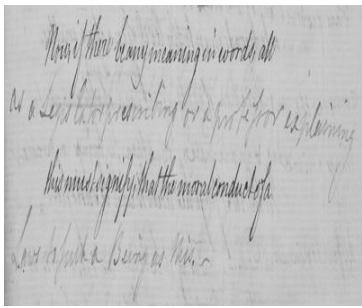 Now, if there be any meaning in words, all
as a Legislator prescribing or a professor explaining
this must signify, that the moral conduct of a
Law to such a Being as this.